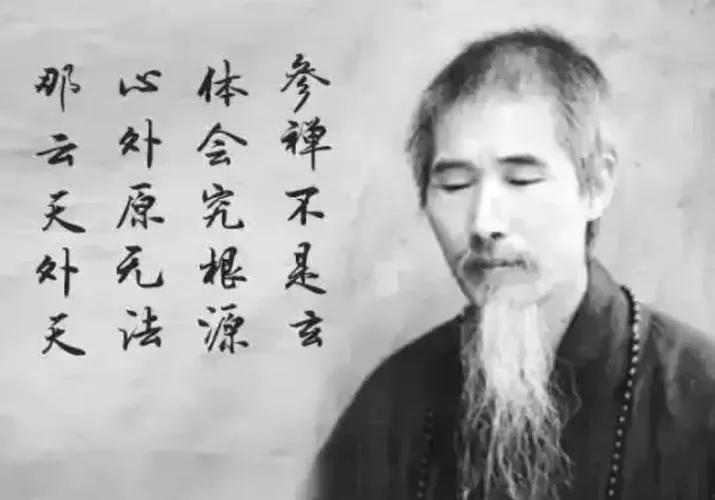 参禅不是玄
体会究根源
心外原无法
那云天外天